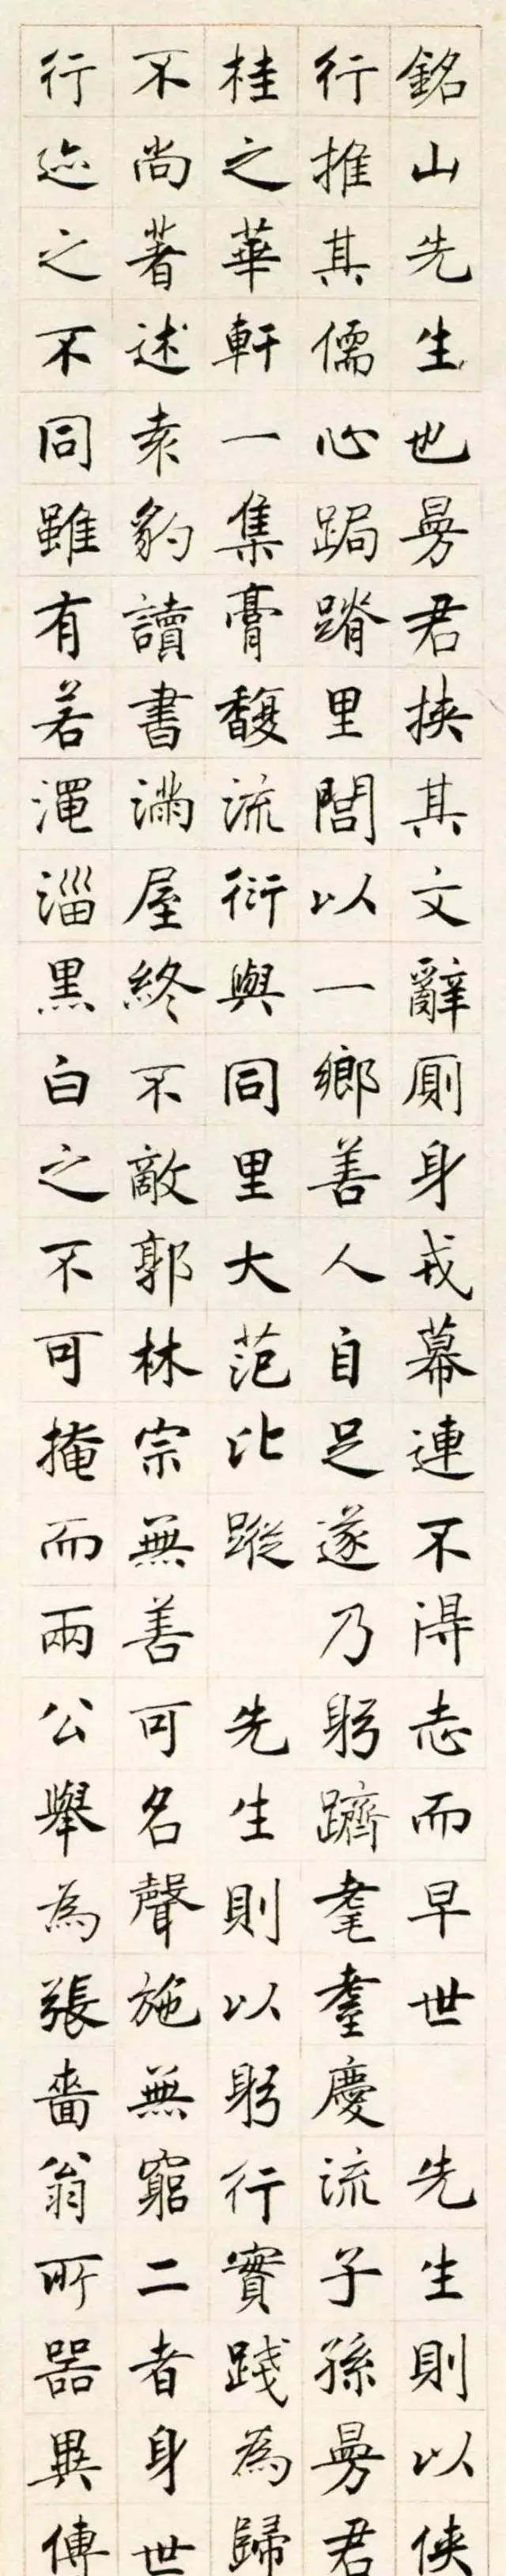 銘山先生也曼君挾其文辭厠身戎幕連不得志而早世　先生則以俠
行推其儒心跼蹐里閭以一鄉善人自足遂乃躬躋耄耋慶流子孫曼君
桂之華軒一集膏馥流衍與同里大范比蹤　先生則以躬行實踐為歸
不尚著述袁豹讀書滿屋終不敵郭林宗無善可名聲施無窮二者身世
行迹之不同雖有若澠淄黑白之不可掩而兩公舉為張嗇翁所器異傳